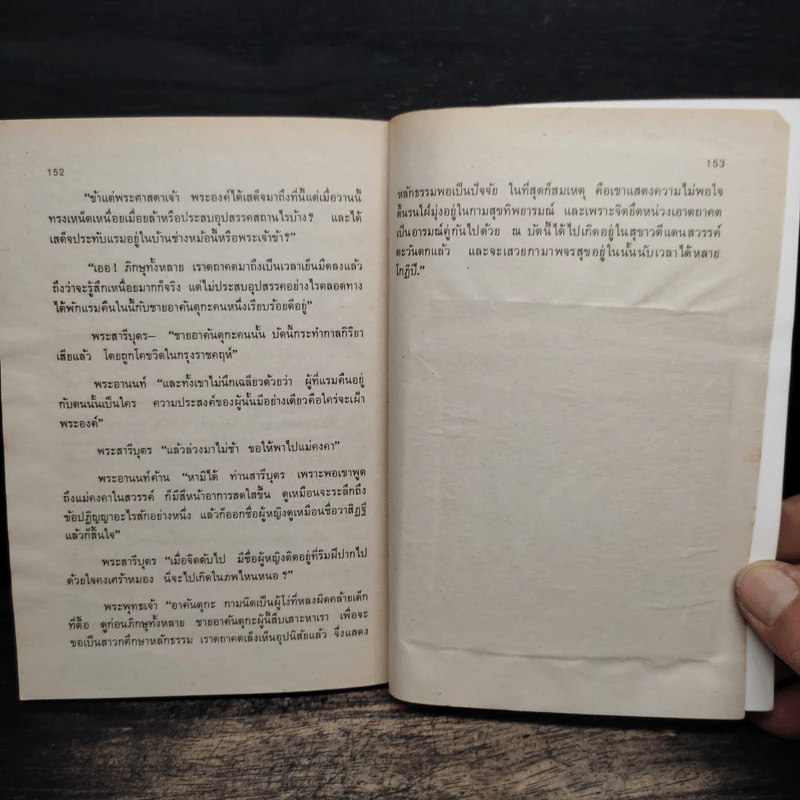 152
“ข้าแต่พระศาสดาเจ้า พระองค์ได้เสด็จมาถึงที่นี้แต่เมื่อวานนี้
ทรงเหน็ดเหนื่อยเมื่อยล้าหรือประสบอุปสรรคสถานไรบ้าง? และได้
เสด็จประทับแรมอยู่ในบ้านช่างหม้อนี้หรือพระเจ้าข้า?”
“เออ! ภิกษุทั้งหลาย เราตถาคตมาถึงเป็นเวลาเย็นมืดลงแล้ว
ถึงว่าจะรู้สึกเหนื่อยมากก็จริง แต่ไม่ประสบอุปสรรคอย่างไรตลอดทาง
ได้พักแรมคืนในนี้กับชายอาคันตุกะคนหนึ่งเรียบร้อยดีอยู่”
พระสารีบุตร– “ชายอาคันตุกะคนนั้น บัดนี้กระทำกาลกิริยา
เสียแล้ว โดยถูกโคขวิดในกรุงราชคฤห์”
พระอานนท์ “และทั้งเขาไม่นึกเฉลียวด้วยว่า ผู้ที่แรมคืนอยู่
กับตนนั้นเป็นใคร ความประสงค์ของผู้นั้นมีอย่างเดียวคือใคร่จะเฝ้า
พระองค์”
พระสารีบุตร “แล้วล่วงมาไม่ช้า ขอให้พาไปแม่คงคา”
พระอานนท์ค้าน “หามิได้ ท่านสารีบุตร เพราะพอเขาพูด
ถึงแม่คงคาในสวรรค์ ก็มีสีหน้าอาการสดใสขึ้น ดูเหมือนจะระลึกถึง
ข้อปฏิญญาอะไรสักอย่างหนึ่ง แล้วก็ออกชื่อผู้หญิงดูเหมือนชื่อวาสิฏฐี
แล้วก็สิ้นใจ”
พระสารีบุตร “เมื่อจิตดับไป มีชื่อผู้หญิงติดอยู่ที่ริมฝีปากไป
ด้วยใจคงเศร้าหมอง นี่จะไปเกิดในภพไหนหนอ?”
พระพุทธเจ้า “อาคันตุกะ กามนิตเป็นผู้โง่ที่หลงผิดคล้ายเด็ก
ที่ดื้อ ดูก่อนภิกษุทั้งหลาย ชายอาคันตุกะผู้นี้สืบเสาะหาเรา เพื่อจะ
ขอเป็นสาวกศึกษาหลักธรรม เราตถาคตเล็งเห็นอุปนิสัยแล้ว จึ่งแสดง
153
หลักธรรมพอเป็นปัจจัย ในที่สุดก็สมเหตุ คือเขาแสดงความไม่พอใจ
ดิ้นรนใฝ่มุ่งอยู่ในกามสุขทิพยารมณ์ และเพราะจิตยึดหน่วงเอาตถาคต
เป็นอารมณ์คู่กันไปด้วย ณ บัดนี้ได้ไปเกิดอยู่ในสุขาวดีแดนสวรรค์
ตะวันตกแล้ว และจะเสวยกามาพจรสุขอยู่ในนั้นนับเวลาได้หลาย
โกฏิปี.”